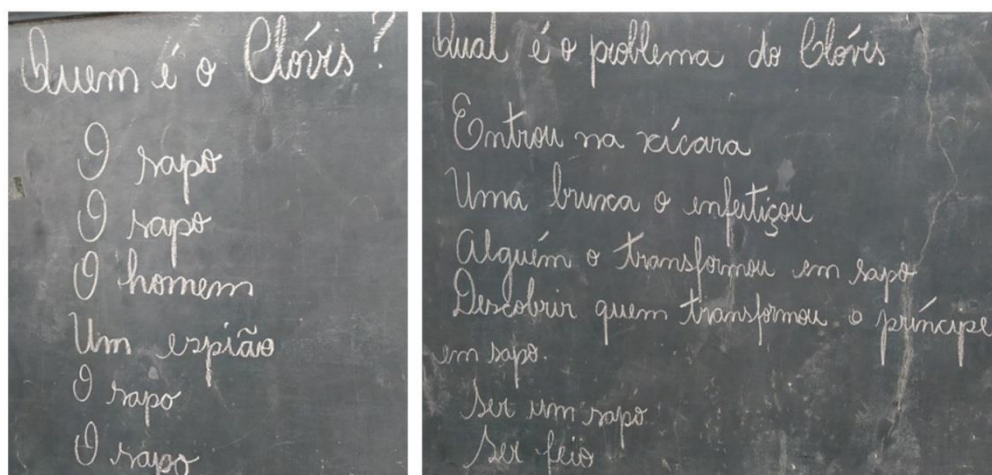 Quem é o Clóvis?
O sapo
O sapo
O homem
Um espião
O sapo
O sapo
Qual é o problema do Clóvis
Entrou na xícara
Uma bruxa o enfeitiçou
Alguém o transformou em sapo
Descobrir quem transformou o príncipe
em sapo.
Ser um sapo
Ser feio